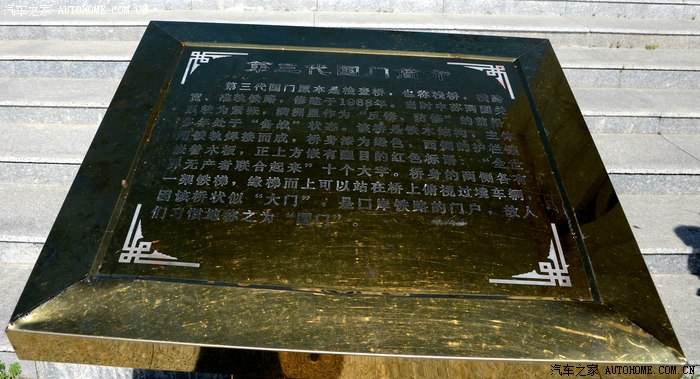 汽车之家 WWW.AUTOHOME.COM.CN
第三代国门简介
第三代国门原本是检查桥，也称栈桥，横跨
宽、准轨铁路，修建于1968年。当时中苏两国
满洲里作为“反修、防修”的前
处于“备战”状态。该桥是铁木结构，主体
用铁轨焊接而成，桥身漆为绿色，西侧的护栏
装着木板，正上方嵌有醒目的红色标语：“全世
界无产者联合起来”十个大字。桥身的两侧各有
一架铁梯，缘梯而上可以站在桥上俯视过境车辆。
因该桥状似“大门”，是口岸铁路的门户，故人
们习惯地称之为“国门”。
汽车之家 WWW.AUTOHOME.COM.CN